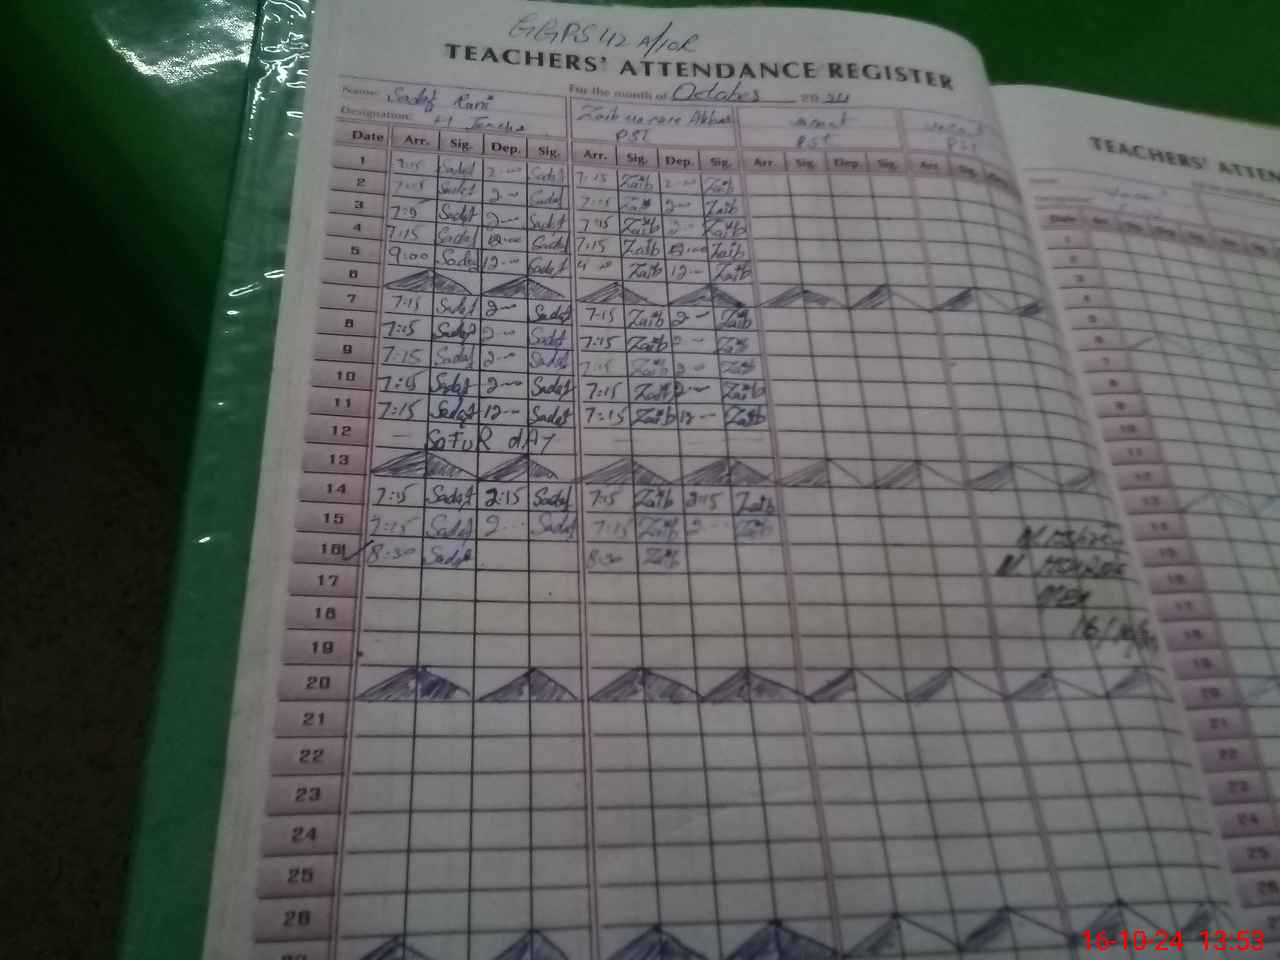 GGPS 42 A/10R
TEACHERS' ATTENDANCE REGISTER
Name: Sadaf Rani For the month of October 2024
Designation: H Teacher Abbas vacant vacant
PST PST PST
Date Arr. Sig. Dep. Sig. Arr. Sig. Dep. Sig. Arr. Sig. Dep. Sig. Arr. Sig.
1 7:15 Sadaf 2-00 Sadaf 7:15 Zaib 2-00 Zaib
2 7:15 Sadaf 2-00 Sadaf 7:15 Zaib 2-00 Zaib
3 7:15 Sadaf 2-00 Sadaf 7:15 Zaib 2-00 Zaib
4 7:15 Sadaf 12-00 Sadaf 7:15 Zaib 12-00 Zaib
5 9:00 Sadaf 12-00 Sadaf 9-00 Zaib 12-00 Zaib
6
7 7:15 Sadaf 2-00 Sadaf 7:15 Zaib 2-00 Zaib
8 7:15 Sadaf 2-00 Sadaf 7:15 Zaib 2-00 Zaib
9 7:15 Sadaf 2-00 Sadaf 7:15 Zaib 2-00 Zaib
10 7:15 Sadaf 2-00 Sadaf 7:15 Zaib 2-00 Zaib
11 7:15 Sadaf 12-00 Sadaf 7:15 Zaib 12-00 Zaib
12 SaTuR dAY
13
14 7:15 Sadaf 2:15 Sadaf 7:15 Zaib 2:15 Zaib
15 7:15 Sadaf 2-00 Sadaf 7:15 Zaib 2-00 Zaib
16 8:30 Sadaf 8:30 Zaib
17
18
19
20
21
22
23
24
25
26
MEA
16/10/24
TEACHERS' ATTEN
Date
1
2
3
4
5
6
7
8
9
10
11
12
13
14
15
16
17
18
19
20
21
22
23
24
25
26
16-10-24 13:53